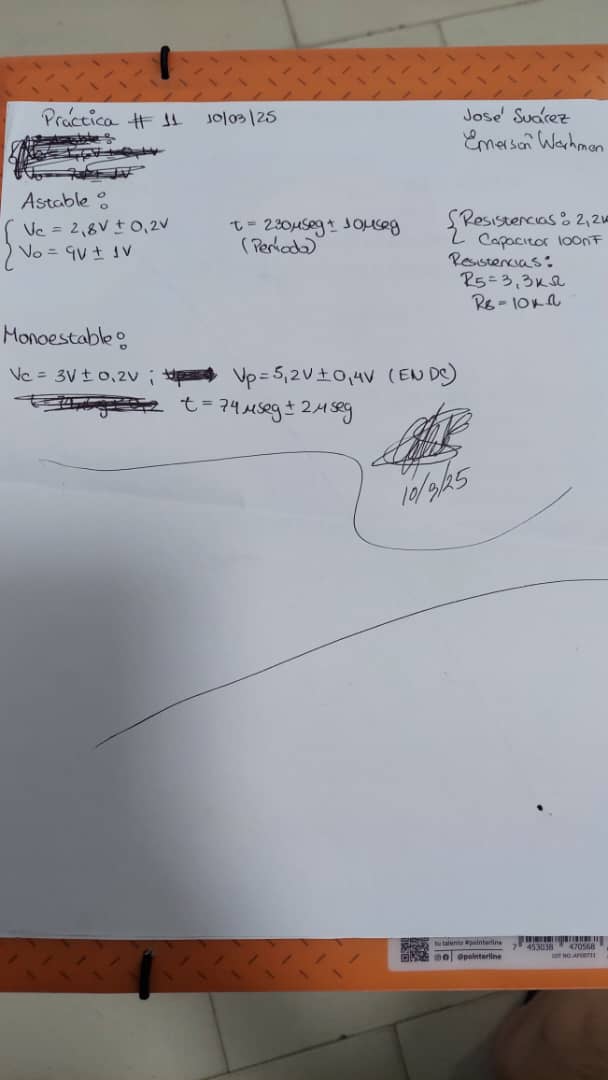 Práctica # 11 10/03/25
José Suárez
Emerson
Astable:
Vc = 2,8V ± 0,2V
Vo = 9V ± 1V
t = 230µseg ± 10µseg
(Período)
Resistencias: 2,2K
Capacitor 100nF
Resistencias:
R5 = 3,3KΩ
R6 = 10KΩ
Monoestable:
Vc = 3V ± 0,2V ; Vp = 5,2V ± 0,4V (EN DC)
t = 74µseg ± 2µseg
10/3/25
tu talento #pointerline
@pointerline
7 453038 470568
LOT NO.